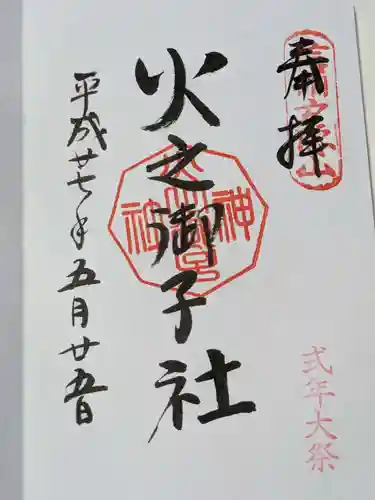 奉拝
式年大祭
火之御子社
平成廿七年五月廿五日